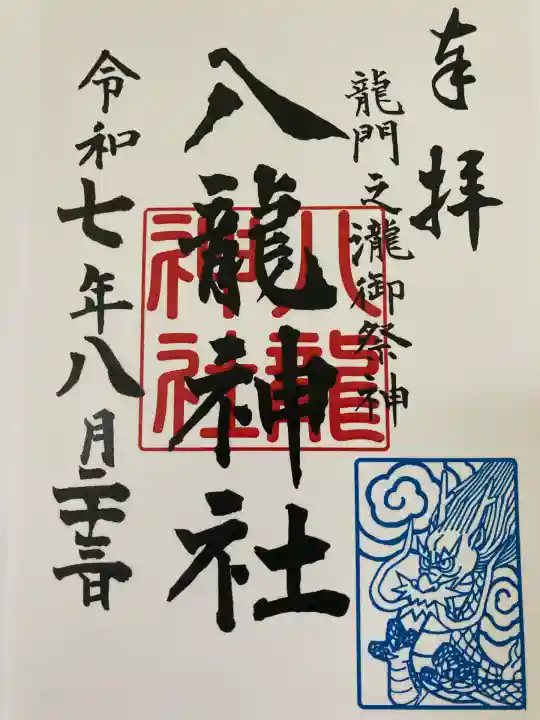 奉拝
龍門之瀧御祭神
八龍神社
八龍神社
令和七年八月二十三日